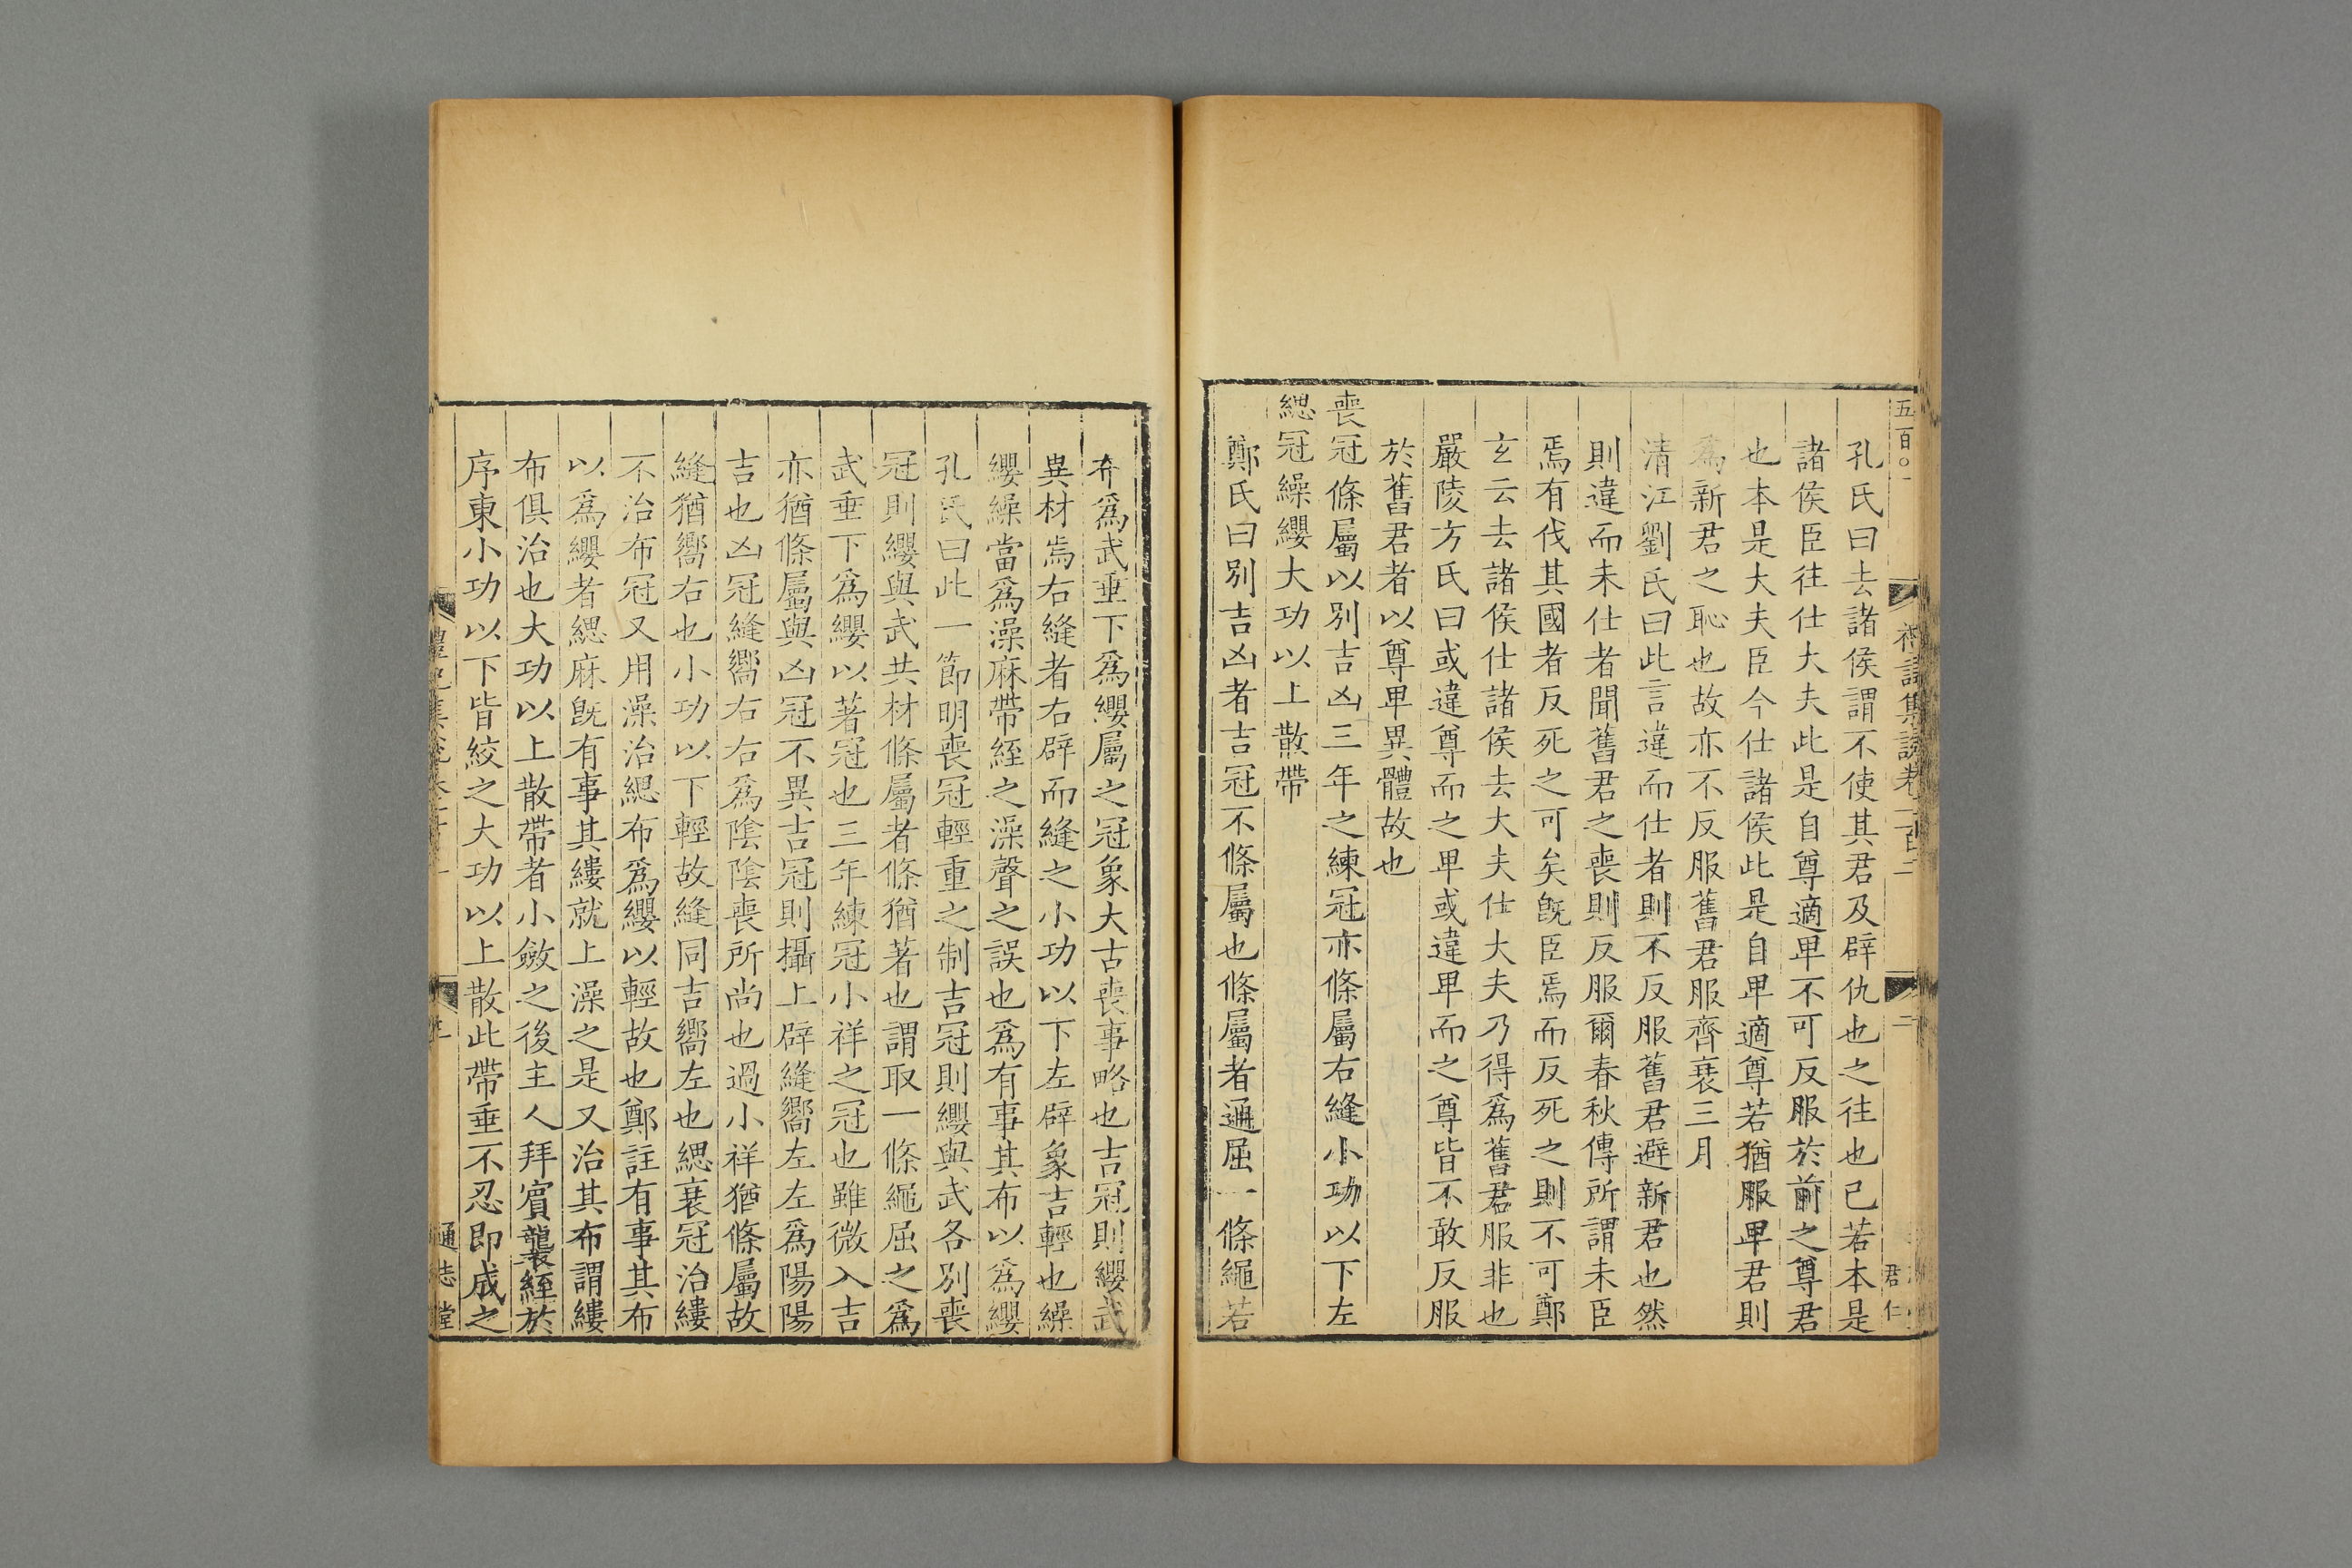 五百〇一
禮記集說卷一百二
二
君仁
孔氏曰去諸侯謂不使其君及辟仇也之往也已若本是
諸侯臣往仕大夫此是自尊適卑不可反服於前之尊君
也本是大夫臣今仕諸侯此是自卑適尊若猶服卑君則
爲新君之恥也故亦不反服舊君服齊衰三月
清江劉氏曰此言違而仕者則不反服舊君避新君也然
則違而未仕者聞舊君之喪則反服爾春秋傳所謂未臣
焉有伐其國者反死之可矣旣臣焉而反死之則不可鄭
玄云去諸侯仕諸侯去大夫仕大夫乃得爲舊君服非也
嚴陵方氏曰或違尊而之卑或違卑而之尊皆不敢反服
於舊君者以尊卑異體故也
喪冠條屬以別吉凶三年之練冠亦條屬右縫小功以下左
緦冠繰纓大功以上散帶
鄭氏曰別吉凶者吉冠不條屬也條屬者通屈一條繩若
布爲武垂下爲纓屬之冠象大古喪事略也吉冠則纓武
異材焉右縫者右辟而縫之小功以下左辟象吉輕也繰
纓繰當爲澡麻帶絰之澡聲之誤也爲有事其布以爲纓
孔氏曰此一節明喪冠輕重之制吉冠則纓與武各別喪
冠則纓與武共材條屬者條猶著也謂取一條繩屈之爲
武垂下爲纓以著冠也三年練冠小祥之冠也雖微入吉
亦猶條屬與凶冠不異吉冠則攝上辟縫嚮左左爲陽陽
吉也凶冠縫嚮右右爲陰陰喪所尚也過小祥猶條屬故
縫猶嚮右也小功以下輕故縫同吉嚮左也緦衰冠治縷
不治布冠又用澡治緦布爲纓以輕故也鄭註有事其布
以爲纓者緦麻旣有事其縷就上澡之是又治其布謂縷
布俱治也大功以上散帶者小斂之後主人拜賓襲絰於
序東小功以下皆絞之大功以上散此帶垂不忍卽成之
通志堂